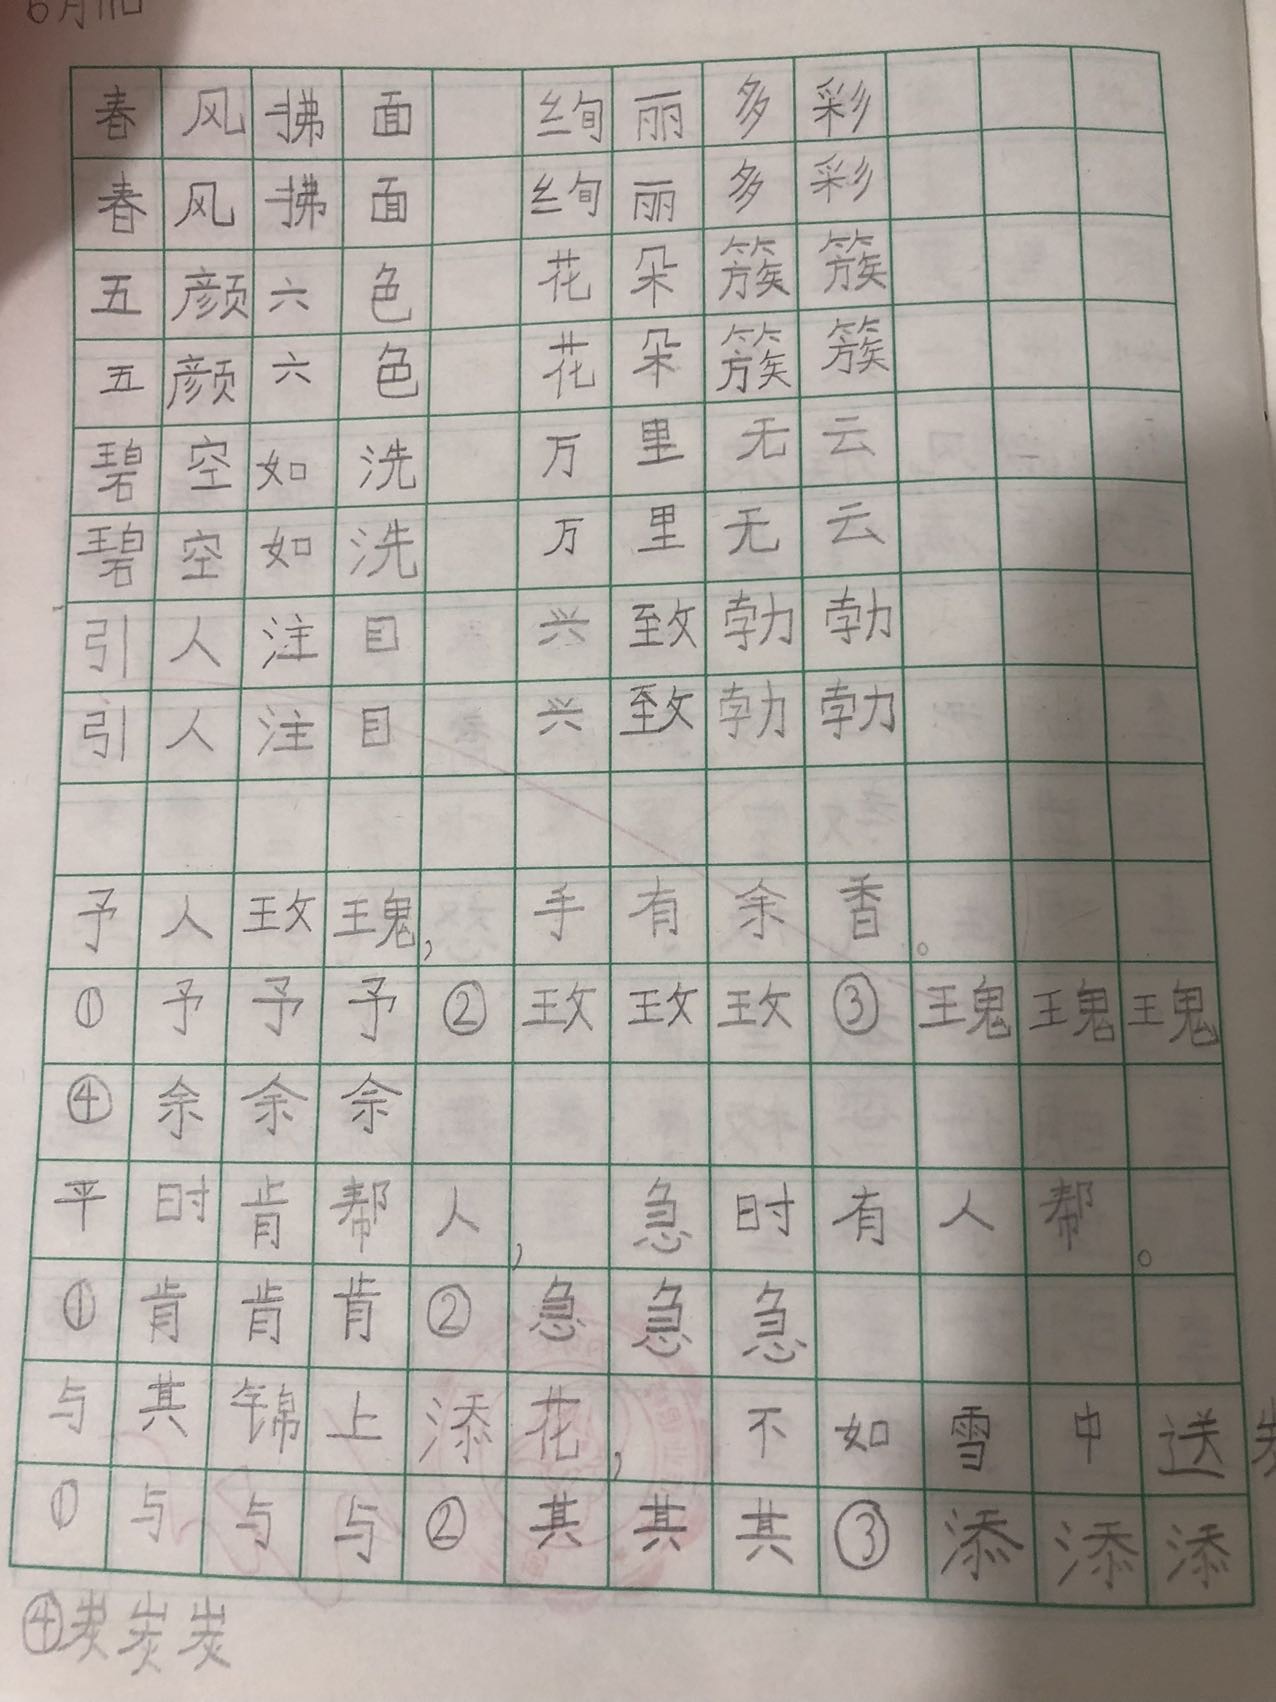 6月11日
春风拂面 绚丽多彩
春风拂面 绚丽多彩
五颜六色 花朵簇簇
五颜六色 花朵簇簇
碧空如洗 万里无云
碧空如洗 万里无云
引人注目 兴致勃勃
引人注目 兴致勃勃
予人玫瑰, 手有余香。
①予予予②玫玫玫③瑰瑰瑰
④余余余
平时肯帮人, 急时有人帮。
①肯肯肯②急急急
与其锦上添花, 不如雪中送炭
①与与与②其其其③添添添
④炭炭炭